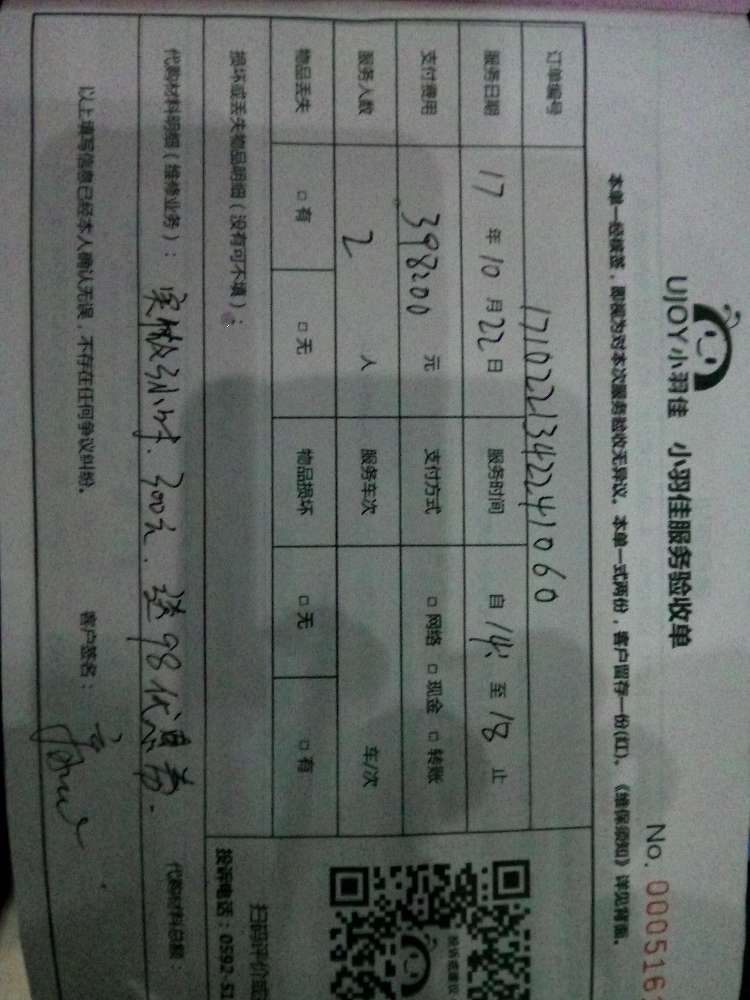 UJOY小羽佳 小羽佳服务验收单
No. 000516
本单一经核签，即视为对本次服务验收无异议。本单一式两份，客户留存一份(红)。《维保须知》详见背面。
订单编号 171022134224​1060
服务日期 17 年 10 月 22 日 服务时间 自 14: 至 18 止
支付费用 398200 元 支付方式 □网络 □现金 □转账
服务人数 2 人 服务车次 车/次
物品丢失 □有 □无 物品损坏 □无 □有
损坏或丢失物品明细（没有可不填）：
代购材料明细（维修业务）： 实做3小时. 300元. 送98优惠券. 代购材料总额：
以上填写信息已经本人确认无误，不存在任何争议纠纷。 客户签名：
扫码评价或
投诉电话：0592-51